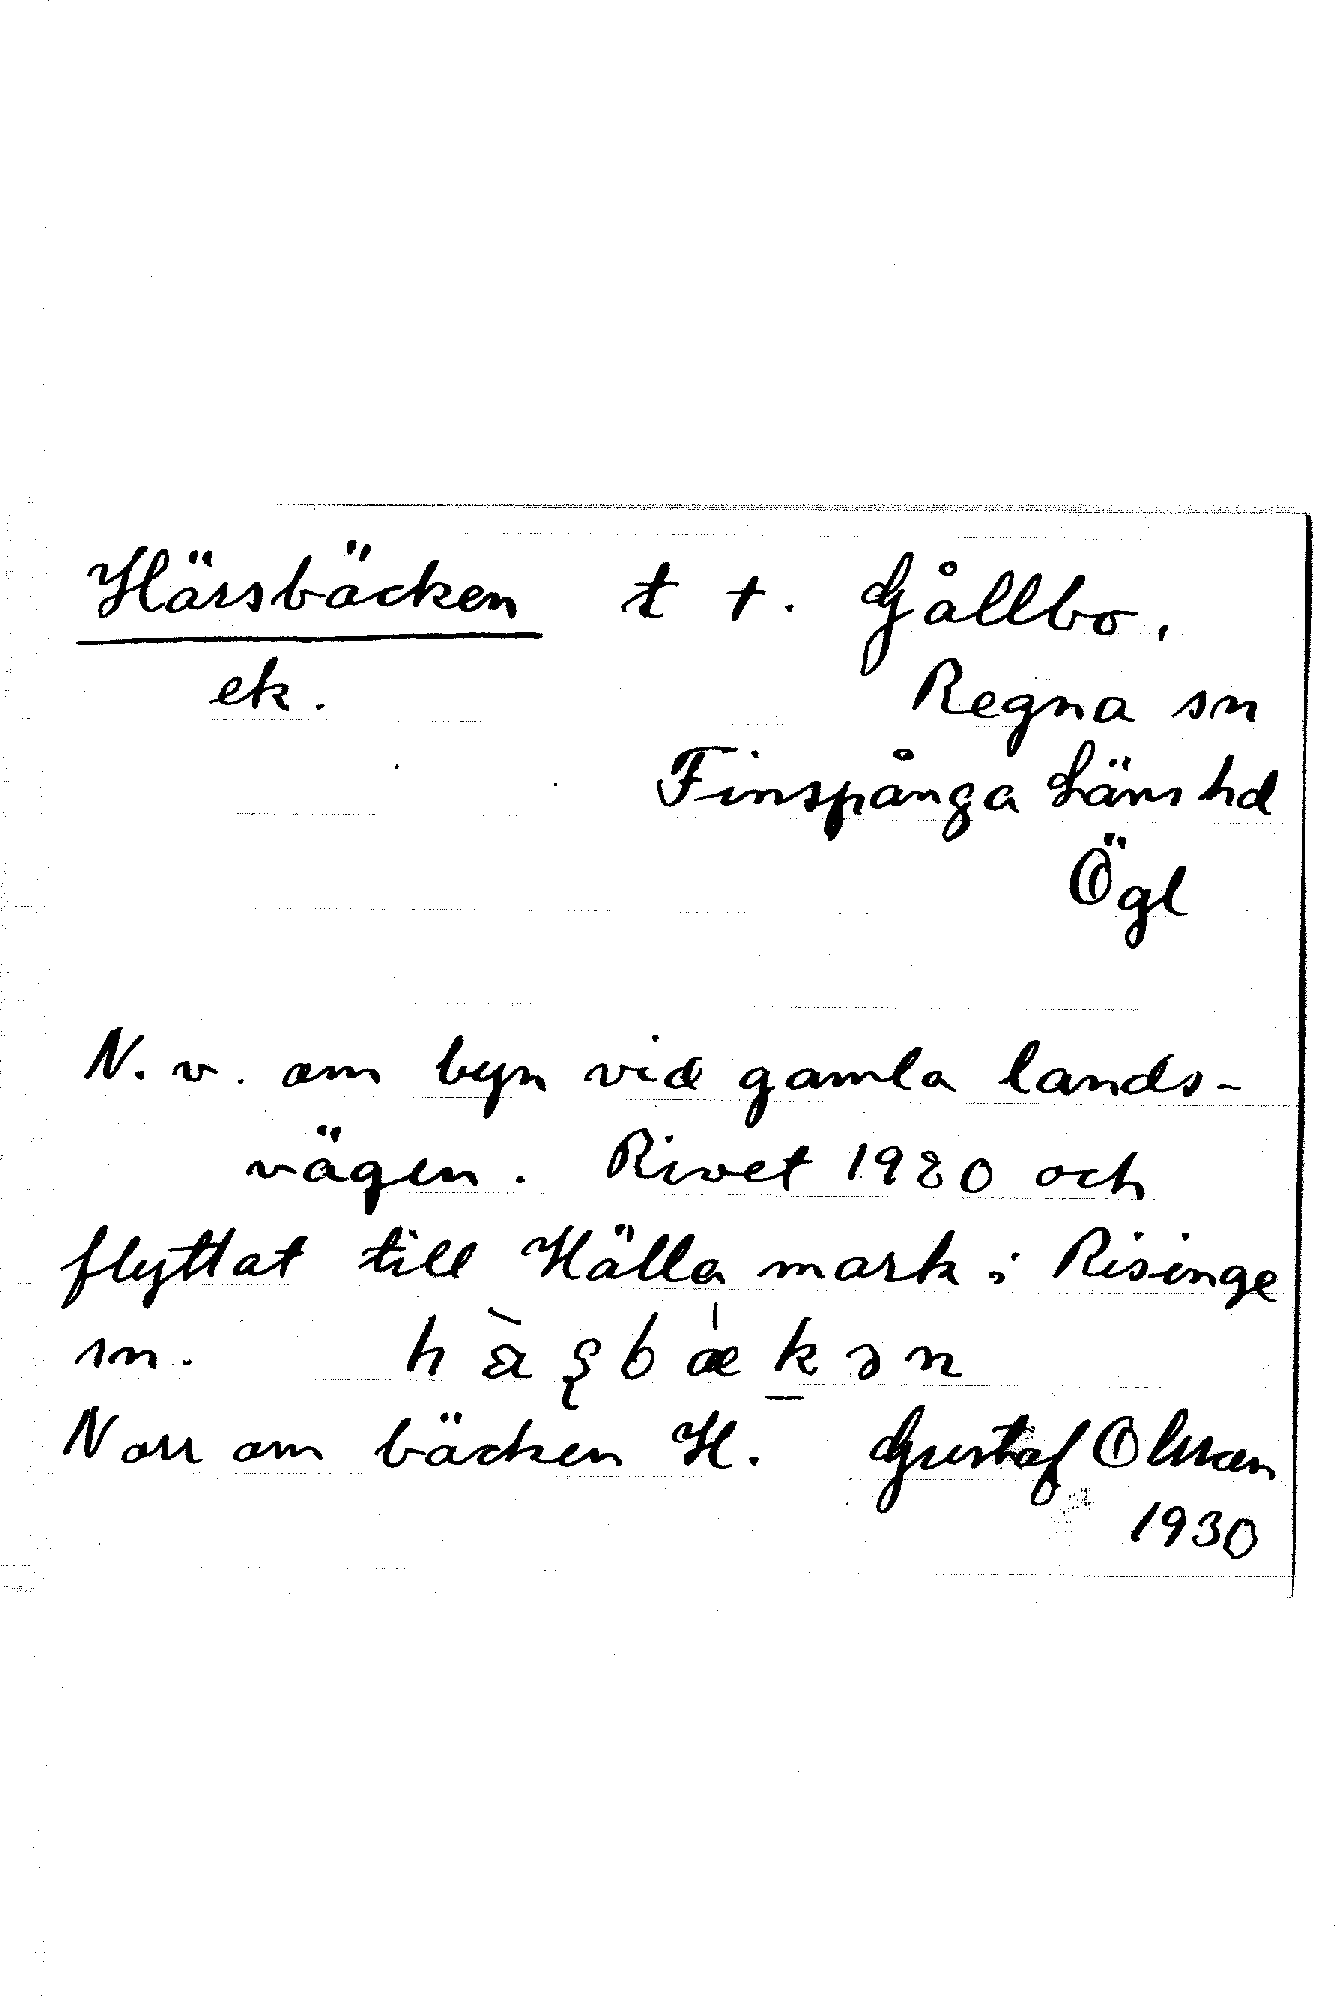 Härsbäcken t †. Gållbo.
ek. Regna sn
Finspånga Läns hd
Ögl
N. v. om byn vid gamla lands-
vägen. Rivet 1920 och
flyttat till Hälla mark i Risinge
sn. bækən
Norr om bäcken H. Gustaf Olsson
1930